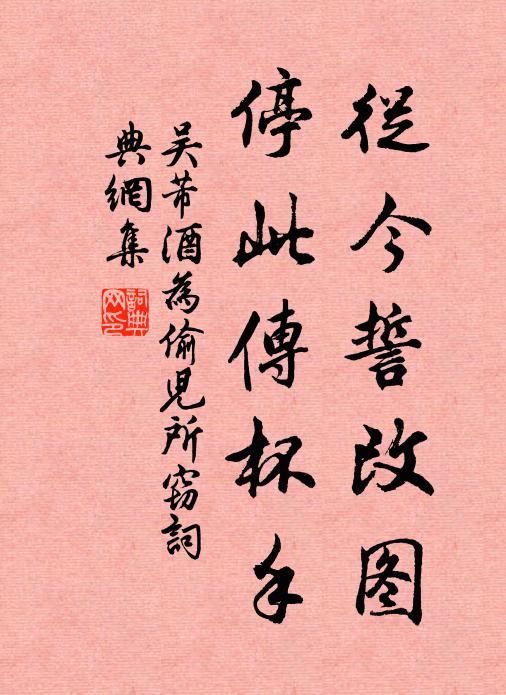 從今誓改图
停此傳杯手
吴芾酒為偷兒所窃詞
典網集
詞典网印